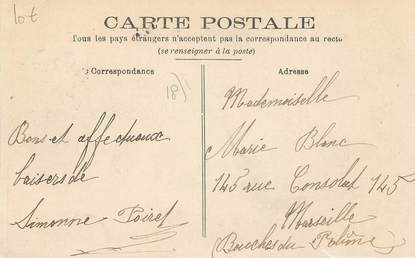 lot
CARTE POSTALE
Tous les pays étrangers n'acceptent pas la correspondance au recto
(se renseigner à la poste)
Correspondance
Adresse
18
Bons et affectueux
baisers de
Simonne Poiret
Mademoiselle
Marie Blanc
145 rue Consolat 145
Marseille
(Bouches du Rhône)